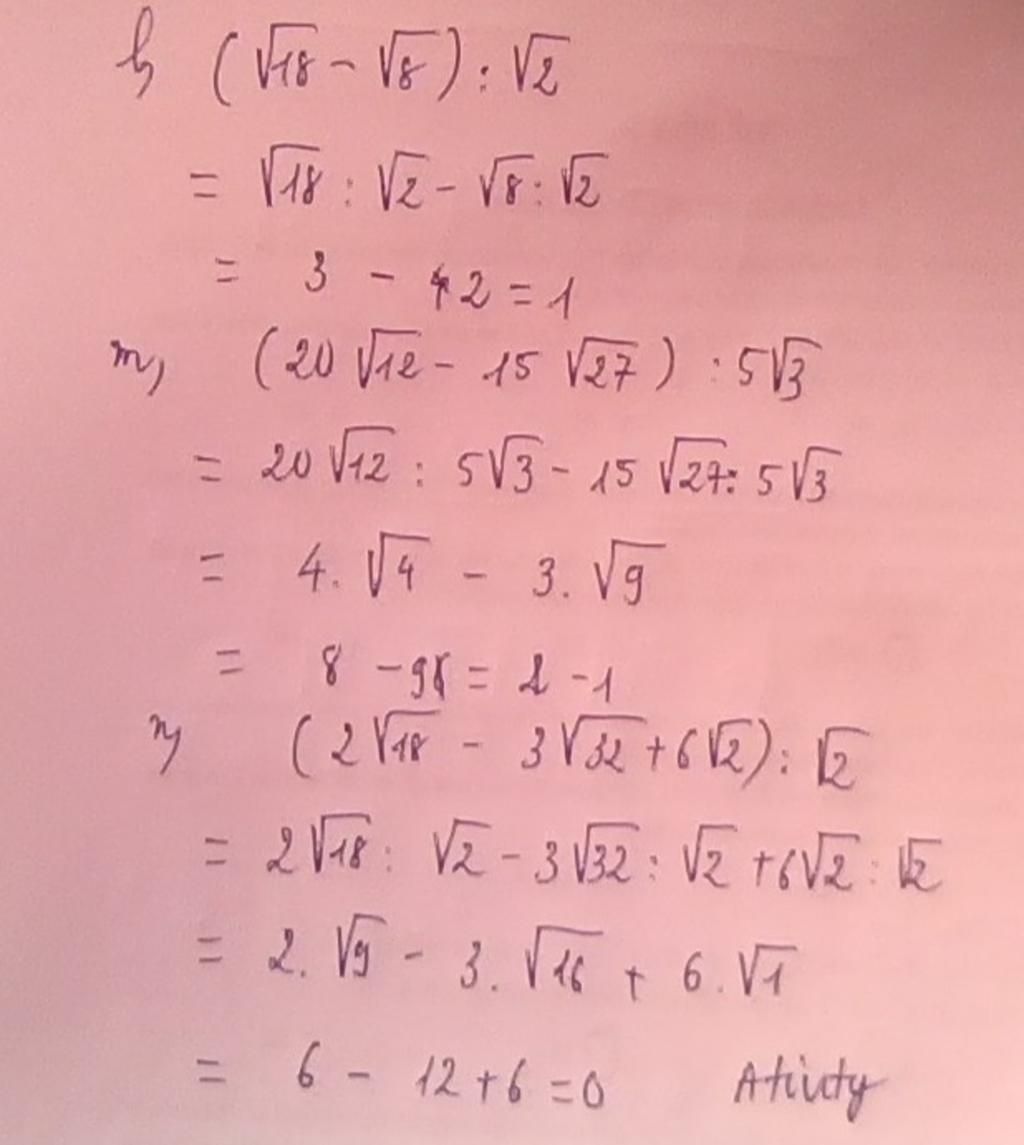 h, (√18 - √8) : √2
= √18 : √2 - √8 : √2
= 3 - 2 = 1
m, (20√12 - 15√27) : 5√3
= 20√12 : 5√3 - 15√27 : 5√3
= 4.√4 - 3.√9
= 8 - 9 = -1
n, (2√18 - 3√32 + 6√2) : √2
= 2√18 : √2 - 3√32 : √2 + 6√2 : √2
= 2.√9 - 3.√16 + 6.√1
= 6 - 12 + 6 = 0